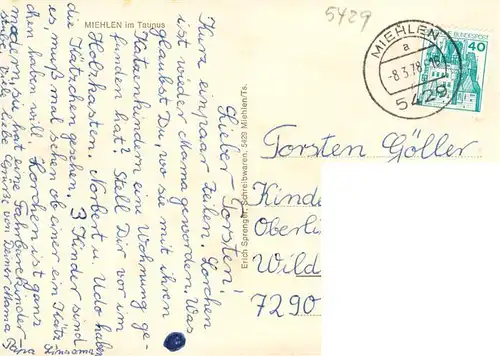 5429
MIEHLEN im Taunus
MIEHLEN
a
-8.3.78-16
5429
BUNDESPOST
40
Lieber Torsten!
Kurz ein paar Zeilen. Lorchen
ist wieder Mama geworden. Was
glaubst Du, wo sie mit ihren
Katzenkindern eine Wohnung ge-
funden hat? Stell Dir vor im
Holzkasten. Norbert u. Udo haben
die Kätzchen gesehn. 3 Kinder sind
es, muß mal sehen ob einer ein Kätz-
chen haben will. Lorchen ist ganz
modern, sie hat eine
viele liebe Grüße von Deiner Mama
Papa
Erich Sprenger, Schreibwaren, 5429 Miehlen/Ts.
Torsten Göller
Kinde
Oberlin
Wild
7290